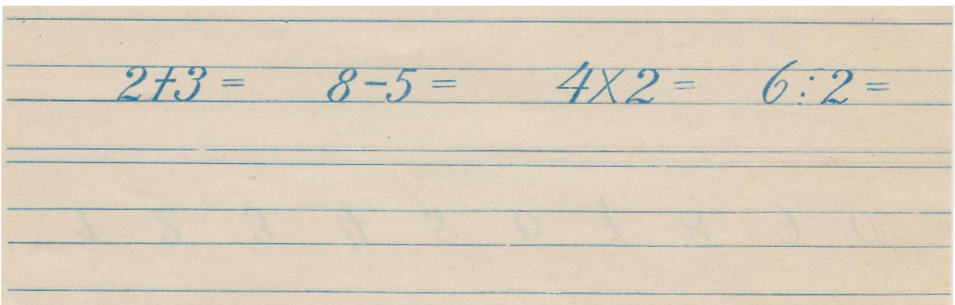 2+3= 8-5= 4X2= 6:2=